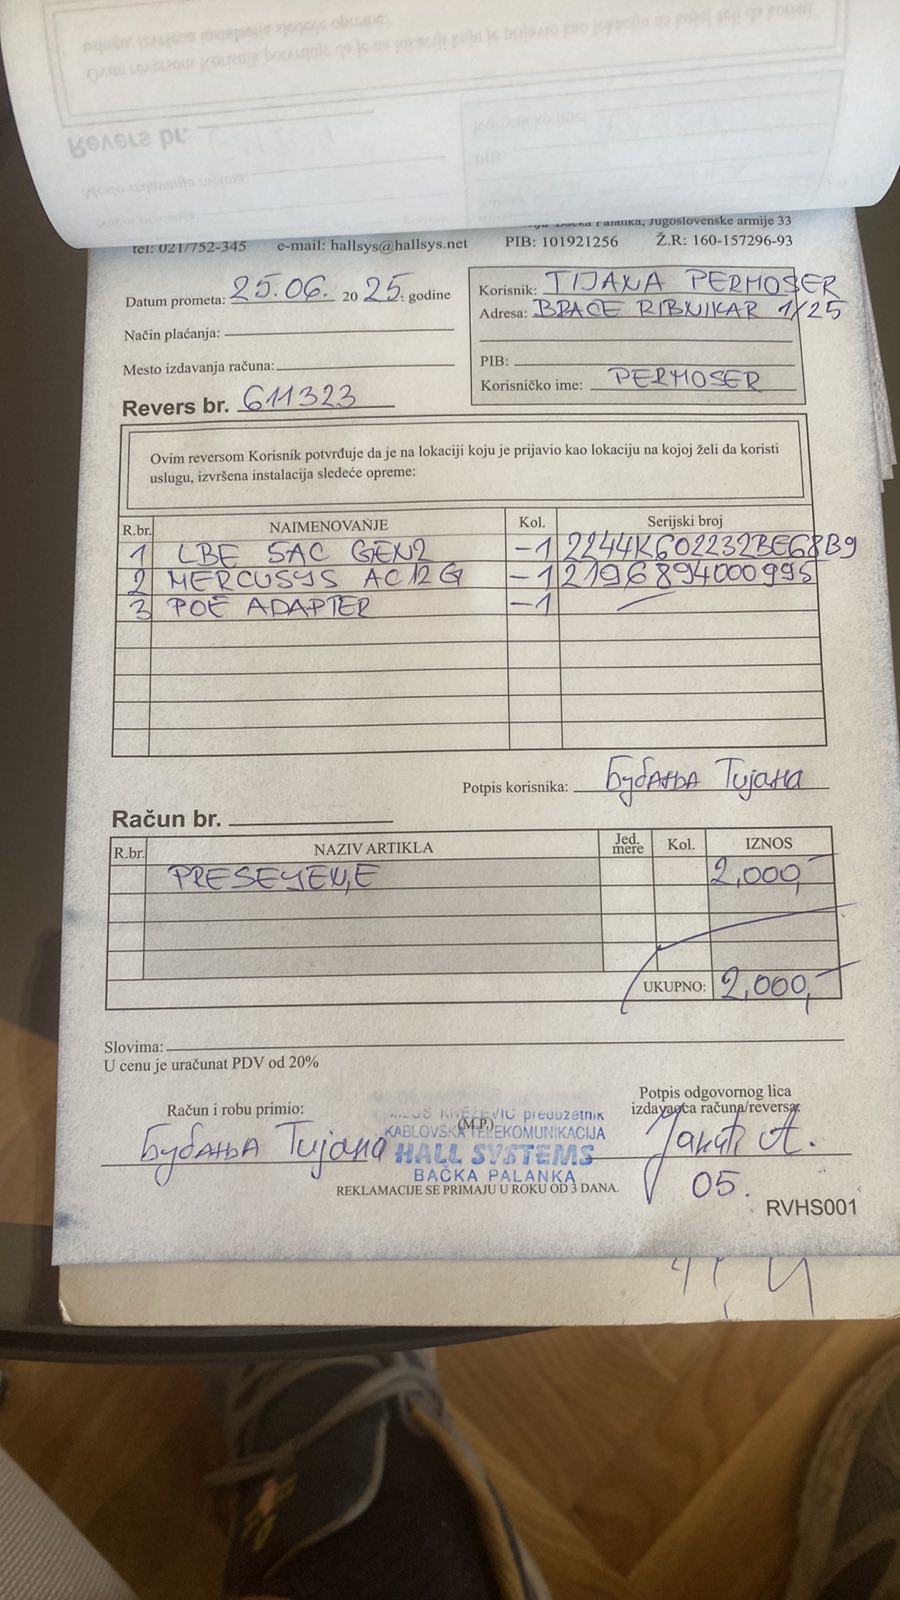 Revers br.
Jugoslovenske armije 33
tel: 021/752-345 e-mail: hallsys@hallsys.net PIB: 101921256 Ž.R: 160-157296-93
Datum prometa: 25.06. 2025. godine
Način plaćanja:
Mesto izdavanja računa:
Revers br. 611323
Korisnik: TIJANA PERMOSER
Adresa: BRAĆE RIBNIKAR 1/25
PIB:
Korisničko ime: PERMOSER
Ovim reversom Korisnik potvrđuje da je na lokaciji koju je prijavio kao lokaciju na kojoj želi da koristi
uslugu, izvršena instalacija sledeće opreme:
R.br. NAIMENOVANJE Kol. Serijski broj
1 LBE 5AC GEN2 -1 2244K602232BE68B9
2 MERCUSYS AC12G -1 2196894000995
3 POE ADAPTER -1
Potpis korisnika: Бубања Тијана
Račun br.
R.br. NAZIV ARTIKLA Jed. mere Kol. IZNOS
PRESELJENJE 2,000,-
UKUPNO: 2,000,-
Slovima:
U cenu je uračunat PDV od 20%
Račun i robu primio:
Бубања Тијана
KNEŽEVIĆ preduzetnik
(M.P.)
KABLOVSKA TELEKOMUNIKACIJA
HALL SYSTEMS
BAČKA PALANKA
REKLAMACIJE SE PRIMAJU U ROKU OD 3 DANA.
Potpis odgovornog lica
izdavaoca računa/reversa:
05.
RVHS001